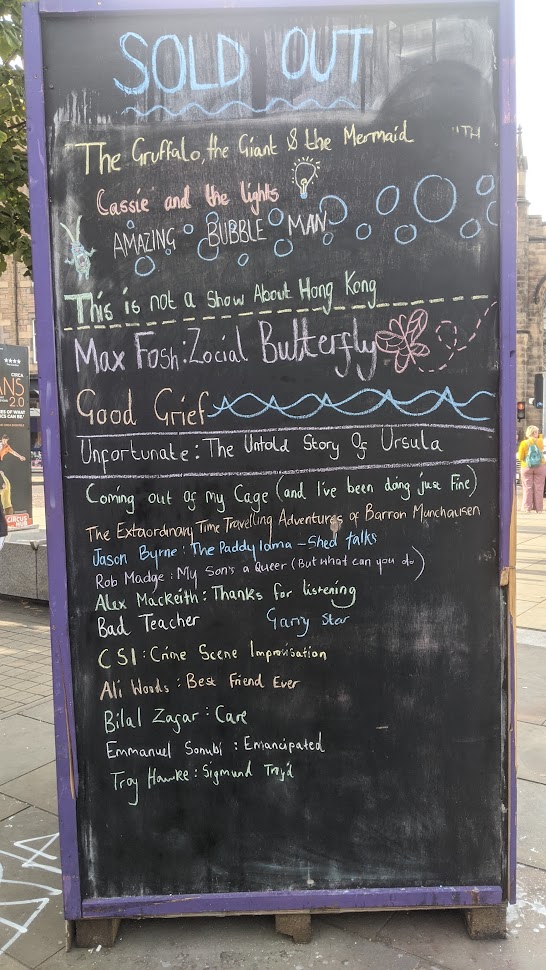 SOLD OUT
The Gruffalo, the Giant & the Mermaid
"TH
Cassie and the lights
AMAZING BUBBLE MAN
This is not a Show About Hong Kong
Max Fosh: Zocial Butterfly
Good Grief
Unfortunate: The Untold Story Of Ursula
Coming out of my Cage (and I've been doing just Fine)
The Extaordinary Time Travelling Adventures of Barron Munchausen
Jason Byrne: The Paddy lama - Shed talks
Rob Madge: My Son's a Queer (But what can you do)
Alex Mackeith: Thanks for listening
Bad Teacher Garry Star
CSI: Crime Scene Improvisation
Ali Woods: Best Friend Ever
Bilal Zafar: Care
Emmanuel Sonubi: Emancipated
Troy Hawke: Sigmund Troy'd
CIRCA
ANS
2.0
CIRCUS